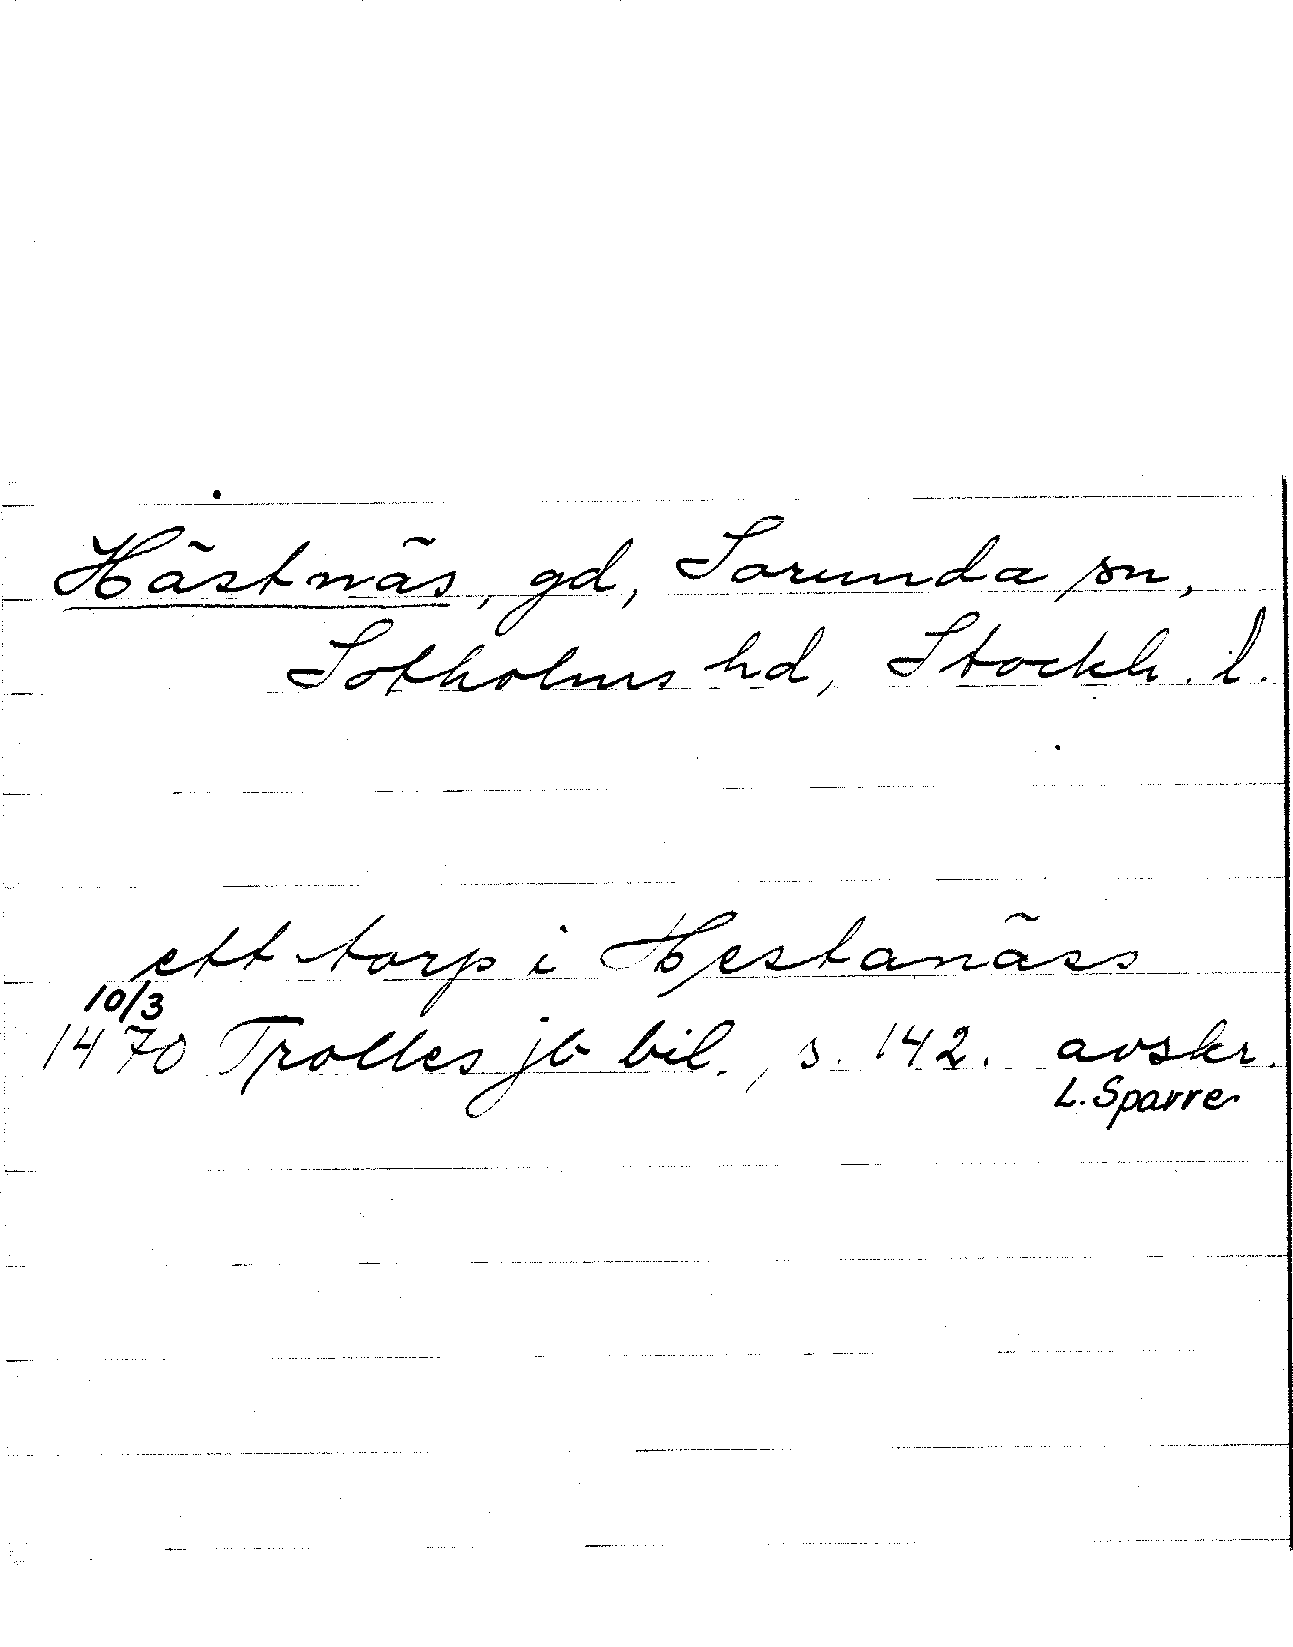 Hästnäs, gd, Sorunda sn,
Sotholms hd, Stockh. l.
ett torp i Hestanäss
10/3
1470 Trolles jb bil., s. 142. avskr.
L. Sparre